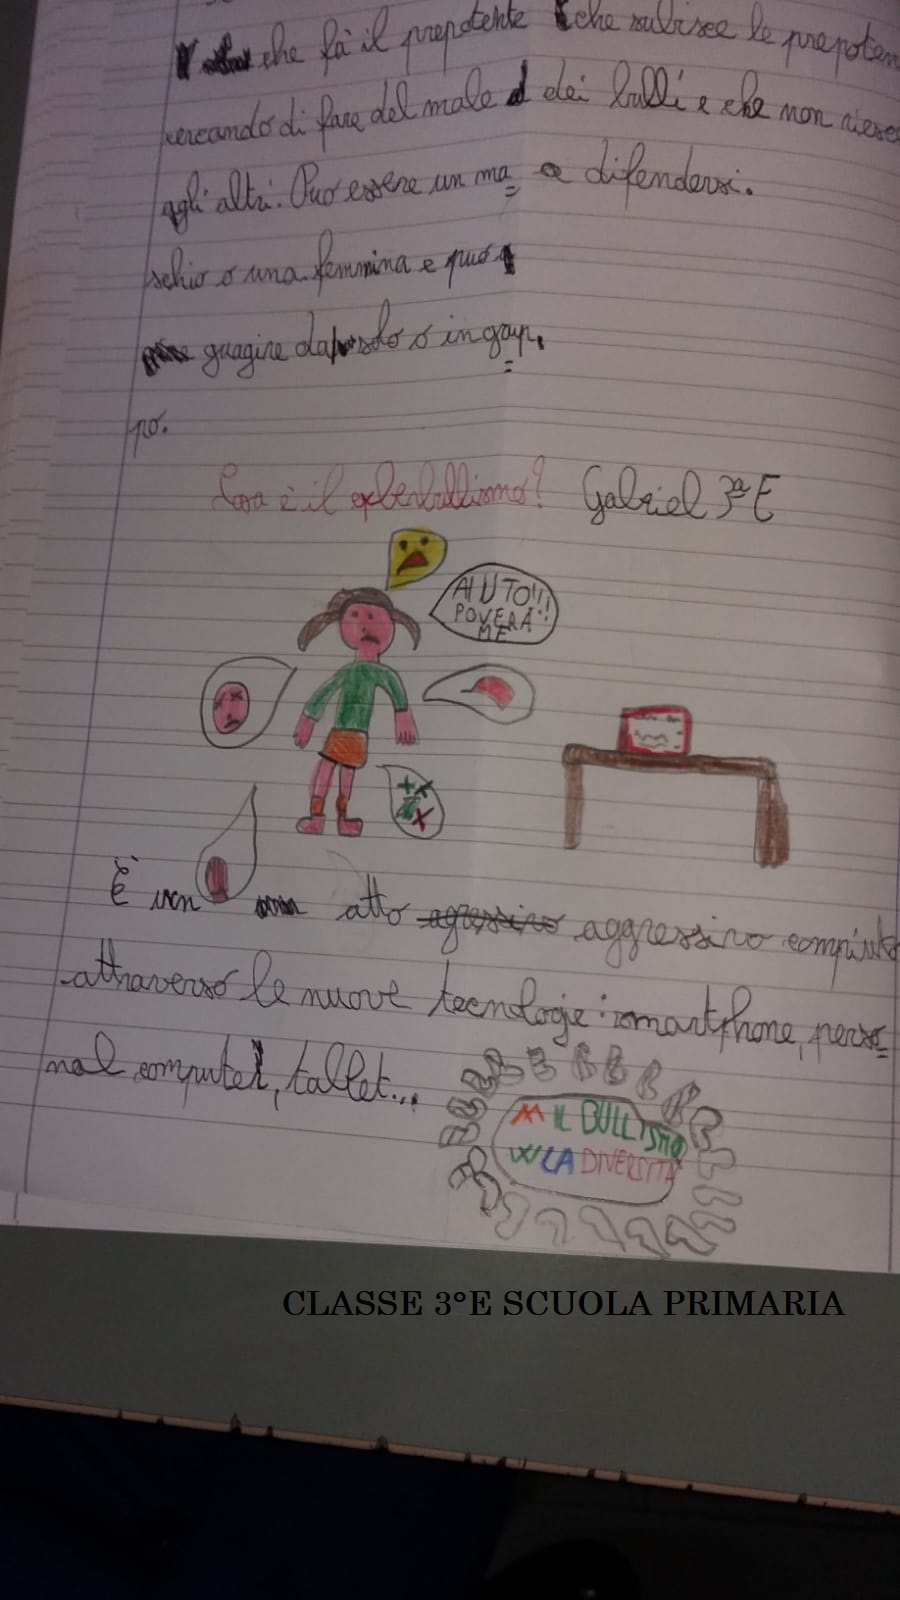 che fà il prepotente
cercando di fare del male
agli altri. Può essere un ma
schio o una femmina e può
guagire da solo o in grup
po.
che subisce le prepoten
dei bulli e che non riesce
a difendersi.
Cosa è il cyberbullismo? Gabriel 3ª E
AIUTO!!!
POVERA!!
ME
È un atto agressivo aggressivo compiuto
attraverso le nuove tecnologie: smartphone, perso
nal computer, tablet...
M IL BULLISMO
W LA DIVERSITÀ
CLASSE 3°E SCUOLA PRIMARIA